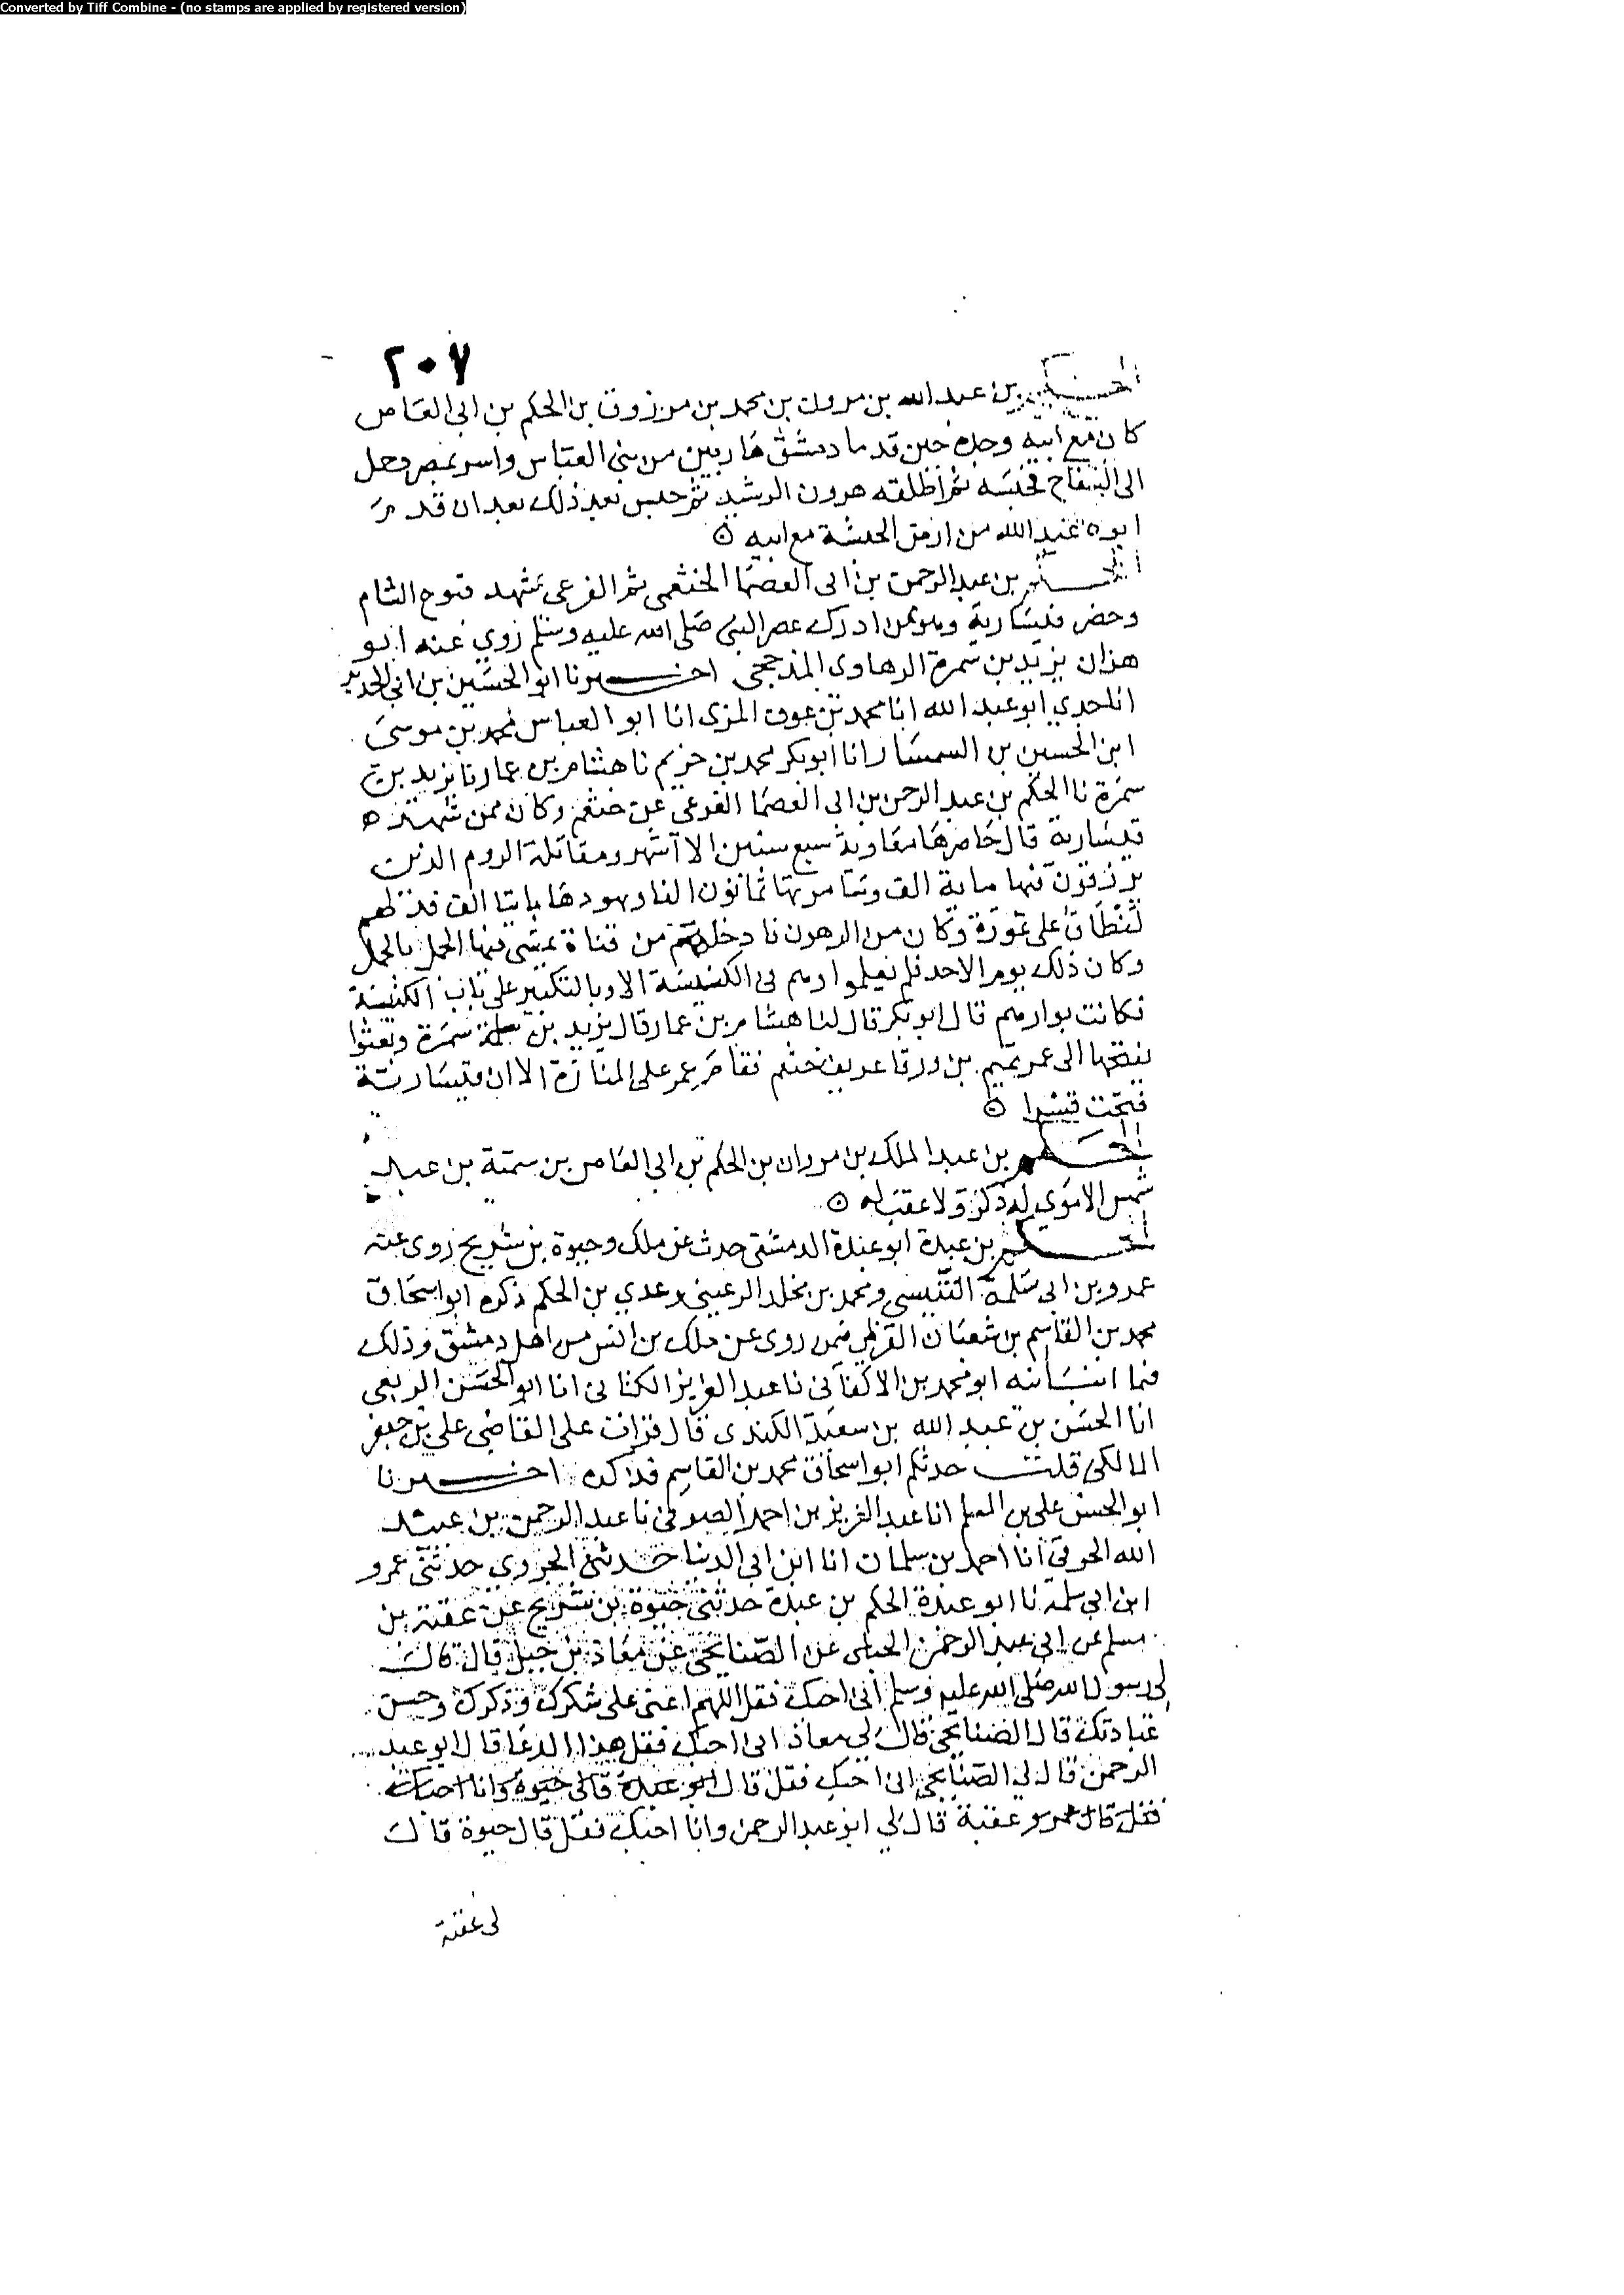 Converted by Tiff Combine - (no stamps are applied by registered version)
٢٠٧
بن عبد الله بن مرون بن محمد بن مرزوق بن الحكم بن ابي العاص
كان مع ابيه وجده حين قدما دمشق هاربين من بني العباس واسر بمصر وحمل
الى السفاح فحبسه ثم اطلقه هرون الرشيد ثم حبس بعد ذلك بعد ان قدم
ابوه عبد الله من ارض الحبشة مع ابيه ه
الحكم بن عبد الرحمن بن ابي العصما الخثعمي ثم الفرعي شهد فتوح الشام
وحضر قيسارية وهو ممن ادرك عصر النبي صلى الله عليه وسلم روي عنه ابو
هزان يزيد بن سمرة الرهاوي المذحجي اخبرنا ابو الحسين بن ابي الحديد
انا جدي ابو عبد الله انا محمد بن عوف المزني انا ابو العباس محمد بن موسى
ابن الحسين بن السمسار انا ابو بكر محمد بن خريم نا هشام بن عمار نا يزيد بن
سمرة نا الحكم بن عبد الرحمن بن ابي العصما الفرعي عن خثعم وكان ممن شهد
قيسارية قال حاصرها معاوية سبع سنين الا اشهر ومقاتلة الروم الذين
يرزقون فيها ماية الف وسامرتها ثمانون الفا ويهودها مايتا الف فدلهم
لنطاق على عورة وكان من الرهون فادخلهم من قناة يمشي فيها الجمل بالحمل
وكان ذلك يوم الاحد فلم يعلموا وهم في الكنيسة الا وبالتكبير على باب الكنيسة
فكانت بوارهم قال ابو بكر قال لنا هشام بن عمار قال يزيد بن سمرة وبعثوا
بفتحها الى عمر تميم بن ورقا عريف خثعم فقام عمر على المنارة الا ان قيسارية
فتحت قسرا ه
الحكم بن عبد الملك بن مروان بن الحكم بن ابي العاص بن بن عبد
شمس الاموي له ذكر ولا عقب له ه
الحكم بن عبدة ابو عبدة الدمشقي حدث عن ملك وحيوة بن شريح روى عنه
عمرو بن ابي سلمة التنيسي ومحمد بن مخلد الرعيني وعدي بن الحكم ذكره ابو اسحاق
محمد بن القاسم بن شعبان القرظي فيمن روى عن ملك بن انس من اهل دمشق وذلك
فيما ابو محمد بن الاكفاني نا عبد العزيز الكتاني انا ابو الحسن الربعي
انا الحسن بن عبد الله بن سعيد الكندي قال قرات على القاضي علي بن جعفر
المالكي قلت حدثكم ابو اسحاق محمد بن القاسم فذكره اخبرنا
ابو الحسن علي بن المسلم انا عبد العزيز بن احمد الصوفي نا عبد الرحمن بن عبيد
الله الحرفي انا احمد بن سلمان انا ابن ابي الدنيا حدثني الجروي حدثني عمرو
ابن ابي سلمة نا ابو عبدة الحكم بن عبدة حدثني حيوة بن شريح عن عقبة بن
مسلم عن ابي عبد الرحمن الحبلي عن الصنابحي عن معاذ بن جبل قال قال
لي رسول الله صلى الله عليه وسلم اني احبك فقل اللهم اعني على شكرك وذكرك وحسن
عبادتك قال الصنابحي قال لي معاذ اني احبك فقل هذا الدعا قال ابو عبد
الرحمن قال لي الصنابحي اني احبك فقل قال ابو عبدة قال لي حيوة وانا احبك
فقل قال عقبة قال لي ابو عبد الرحمن وانا احبك فقل قال حيوة قال
لي عقبة